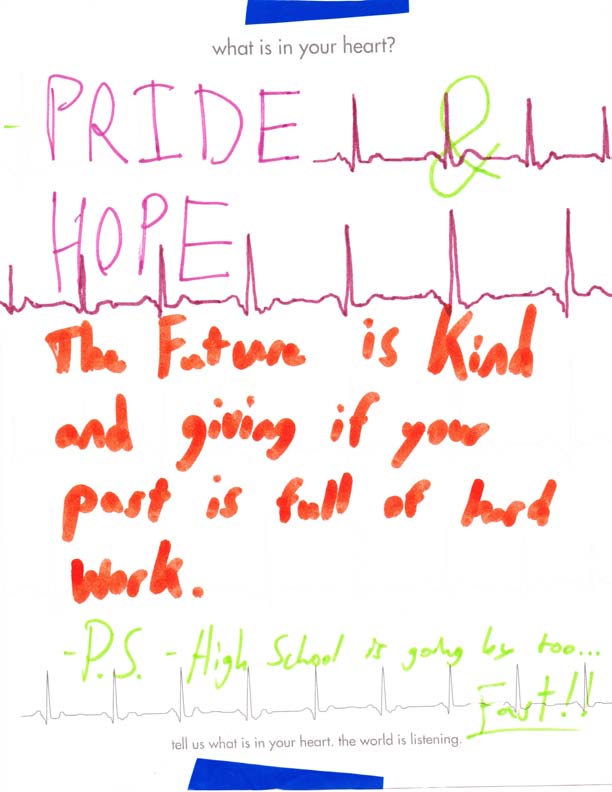 what is in your heart?
- PRIDE &
HOPE
The Future is Kind
and giving if your
past is full of hard
work.
- P.S. - High School is going by too...
Fast!!
tell us what is in your heart. the world is listening.